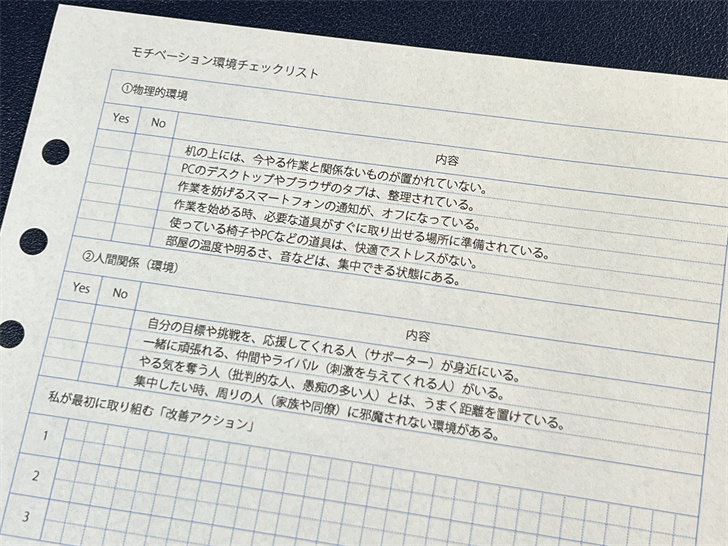 モチベーション環境チェックリスト
①物理的環境
Yes No 内容
机の上には、今やる作業と関係ないものが置かれていない。
PCのデスクトップやブラウザのタブは、整理されている。
作業を妨げるスマートフォンの通知が、オフになっている。
作業を始める時、必要な道具がすぐに取り出せる場所に準備されている。
使っている椅子やPCなどの道具は、快適でストレスがない。
部屋の温度や明るさ、音などは、集中できる状態にある。
②人間関係（環境）
Yes No 内容
自分の目標や挑戦を、応援してくれる人（サポーター）が身近にいる。
一緒に頑張れる、仲間やライバル（刺激を与えてくれる人）がいる。
やる気を奪う人（批判的な人、愚痴の多い人）とは、うまく距離を置けている。
集中したい時、周りの人（家族や同僚）に邪魔されない環境がある。
私が最初に取り組む「改善アクション」
1
2
3